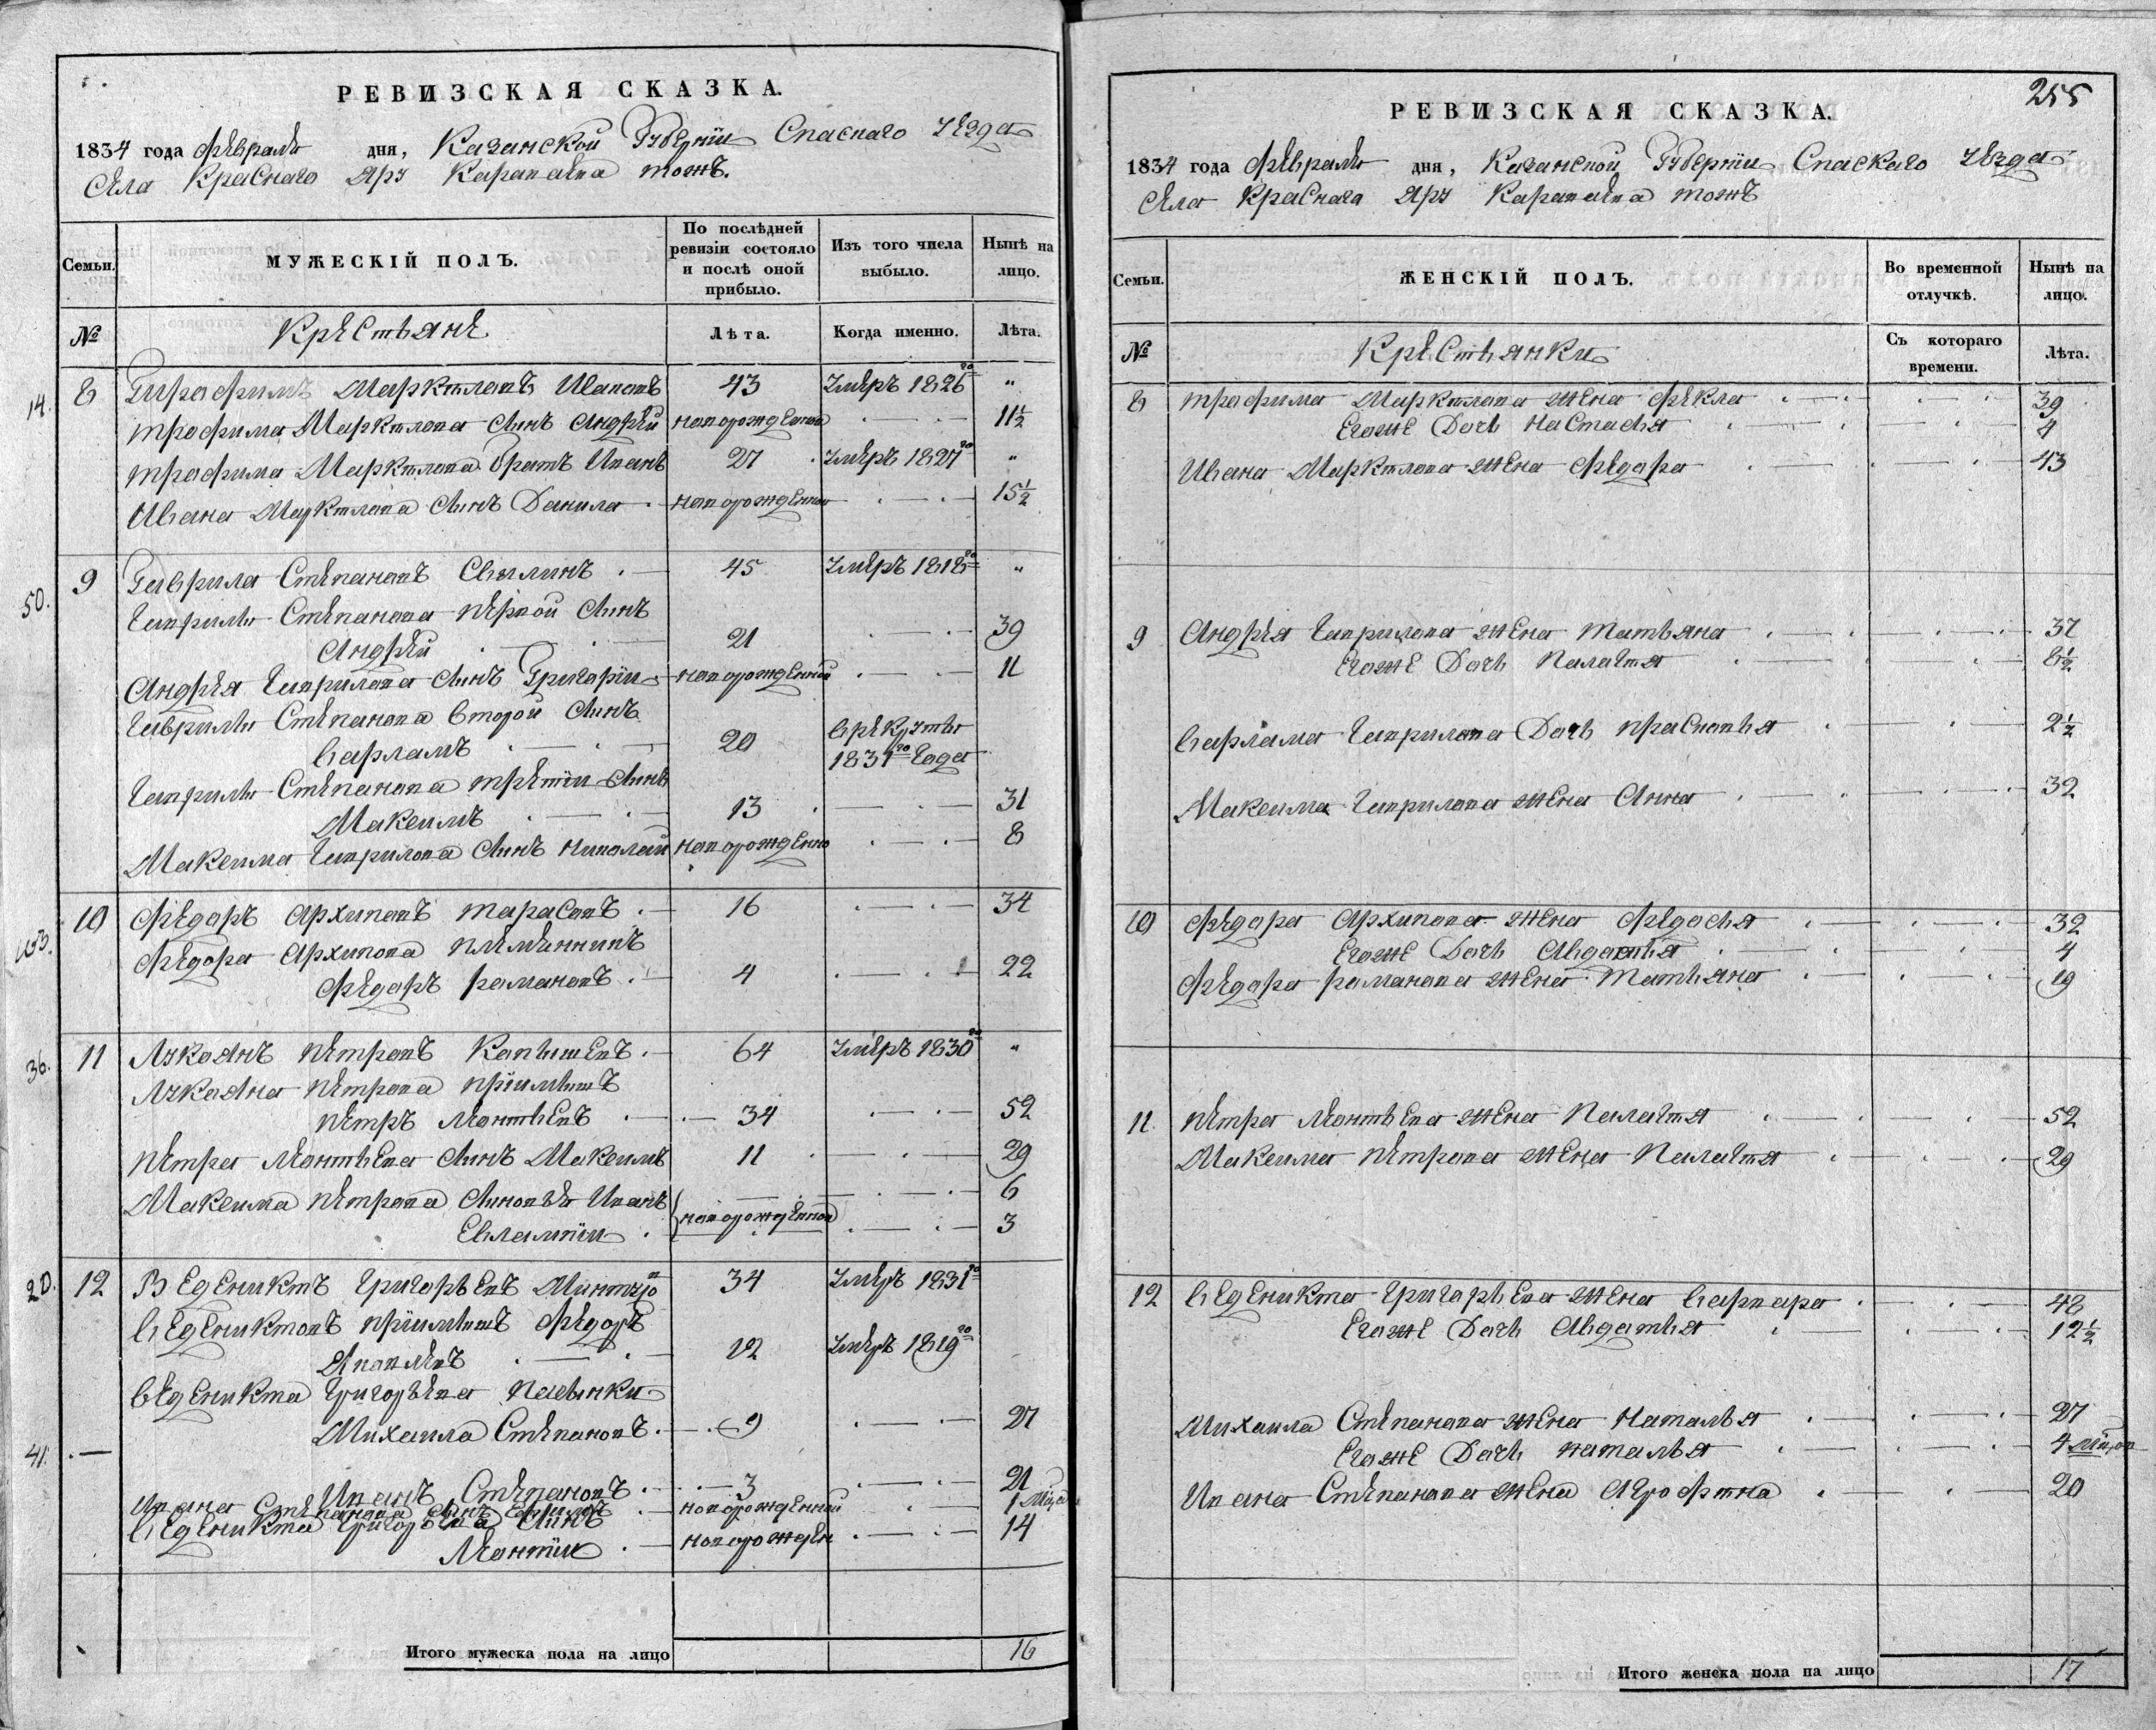 РЕВИЗСКАЯ СКАЗКА.
1834 года февраля дня, Казанской Губернии Спаскаго Уезда
Села Краснаго Яру Карапаева тожъ.
Семьи. МУЖЕСКІЙ ПОЛЪ. По послѣдней ревизіи состояло и послѣ оной прибыло. Изъ того числа выбыло. Нынѣ на лицо.
№ Крестьяне Лѣта. Когда именно. Лѣта.
14. 8 Маркеловъ Ивановъ 43 умеръ 1826го "
трофима Маркелова сынъ Андрей новорожденной 11½
трофима Маркелова братъ Иванъ 27 умеръ 1827го "
Ивана Маркелова сынъ Данила новорожденной 15½
50. 9 Гаврила Степановъ 45 умеръ 1818го "
Гаврилы Степанова первой сынъ
Андрей 21 39
Андрея Гаврилова сынъ Григорiй новорожденной 11
Гаврилы Степанова второй сынъ
варламъ 20 в рекруты 1831го года
Гаврилы Степанова третiй сынъ
Максимъ 13 31
Максима Гаврилова сынъ николай новорожденно 8
10 Федоръ Архиповъ тарасовъ 16 34
Федора Архипова племянникъ
Федоръ романовъ 4 22
36. 11 Лукоянъ петровъ 64 умеръ 1830го "
Лукояна петрова прiимышъ
петръ Леонтьевъ 34 52
петра Леонтьева сынъ Максимъ 11 29
Максима петрова сыновья Иванъ 6
Евлампiи новорожденной 3
20. 12 Ведениктъ григорьевъ 34 умеръ 1831го
ведениктовъ прiимышъ Федоръ
Яковлевъ 12 умеръ 1819го
веденикта григорьева пасынки
Михаила Степановъ 9 27
41. Иванъ Степановъ 3 21
Ивана Степанова сынъ новорожденной 1
веденикта григорьева сынъ
Леонтiи новорожден 14
Итого мужеска пола на лицо 16
255
РЕВИЗСКАЯ СКАЗКА.
1834 года февраля дня, Казанской Губернии Спаскаго Уезда
Села Краснаго Яру Карапаева тожъ
Семьи. ЖЕНСКІЙ ПОЛЪ. Во временной отлучкѣ. Нынѣ на лицо.
№ Крестьянки Съ котораго времени. Лѣта.
8 трофима Маркелова жена фекла 39
Его же дочь настасья 4
Ивана Маркелова жена федора 43
9 Андрея Гаврилова жена татьяна 37
Его же дочь пелагея 8½
варлама Гаврилова дочь 2½
Максима Гаврилова жена Анна 32
10 Федора Архипова жена федосья 32
Его же дочь Авдотья 4
Федора романова жена татьяна 19
11. петра Леонтьева жена пелагея 52
Максима петрова жена пелагея 29
12 веденикта григорьева жена варвара 48
Его же дочь Авдотья 12½
Михаила Степанова жена наталья 27
Его же дочь наталья 4
Ивана Степанова жена Агрофена 20
Итого женска пола на лицо 17